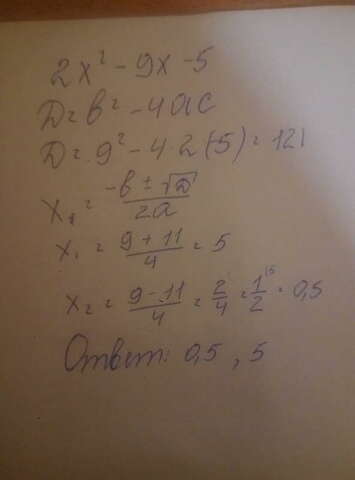 2x² - 9x - 5
D = b² - 4ac
D = 9² - 4·2(-5) = 121
x₁ = -b ± √D / 2a
x₁ = 9 + 11 / 4 = 5
x₂ = 9 - 11 / 4 = 2/4 = 1/2 = 0,5
Ответ: 0,5 , 5